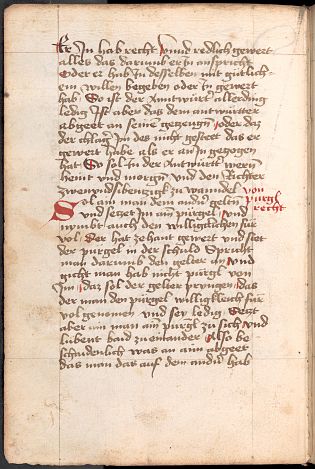 Er In hab recht vnnd redlich gewert
alles das darumb er In anspricht
Oder er hab In desselben mit gutlich
em willen begeben oder In gewert
hab So ist der Antwurt allerding
ledig Ist aber das dem antwurtter
abgeet an seiner gezeugn oder das
der clag In des nicht gesteet das er
gewert habe als er an In gezogen
hat So sol In der Antwurt wern
heint vnd morgn vnd den Richter
zwenvndsibentzigk zu wanndel
von
purgl
recht
Sol am man dem andern gelten
vnd setzet Im ain pürgel vnd
wirbt auch den willigklichen für
vol Der hat zehant gewert vnd stet
der purgel in der schuld Spricht
man darumb den gelter an vnd
gicht man hab nicht pürgl von
Im daz sol der gelter pringen das
der man den pürgel willigklich für
vol genomen vnd sey ledig Setzt
aber im man ain purgl zu sich vnd
lübent baid zueinander Also be
schaidenlich was an aim abgeet
das man das auf dem andern hab